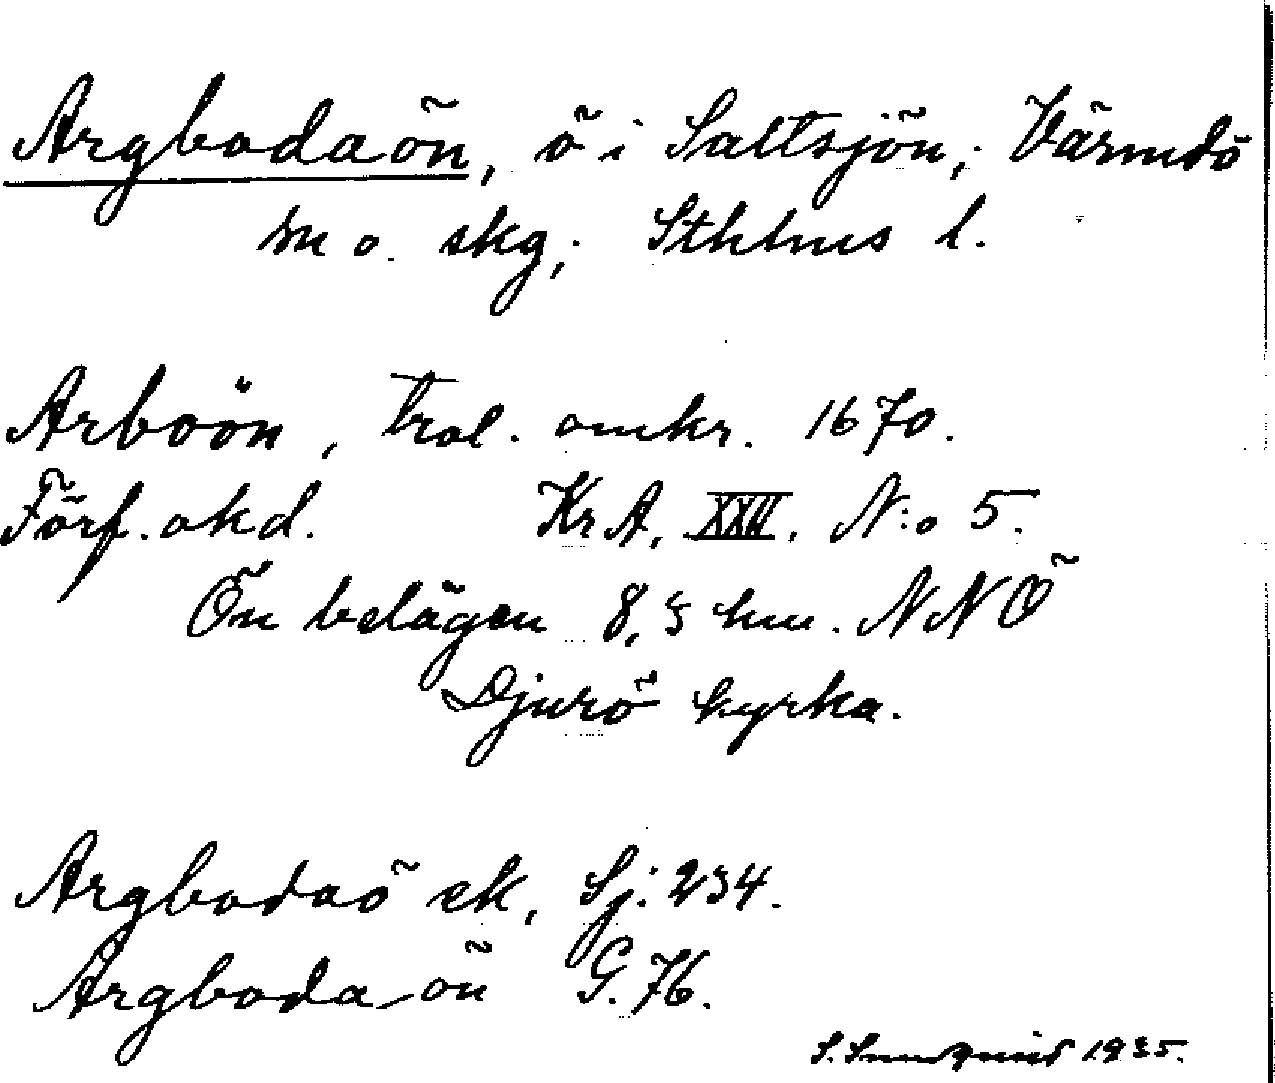 Argbodaön, ö i Saltsjön, Värmdö
m o. skg; Sthlms l.
Arboön, trol. omkr. 1670.
Förf. okd. Kr A, XXII. N:o 5.
Ön belägen 8,5 km. NNÖ
Djurö kyrka.
Argbodaö sk, Sj: 234.
Argboda-ön G. 76.
S. 1935.